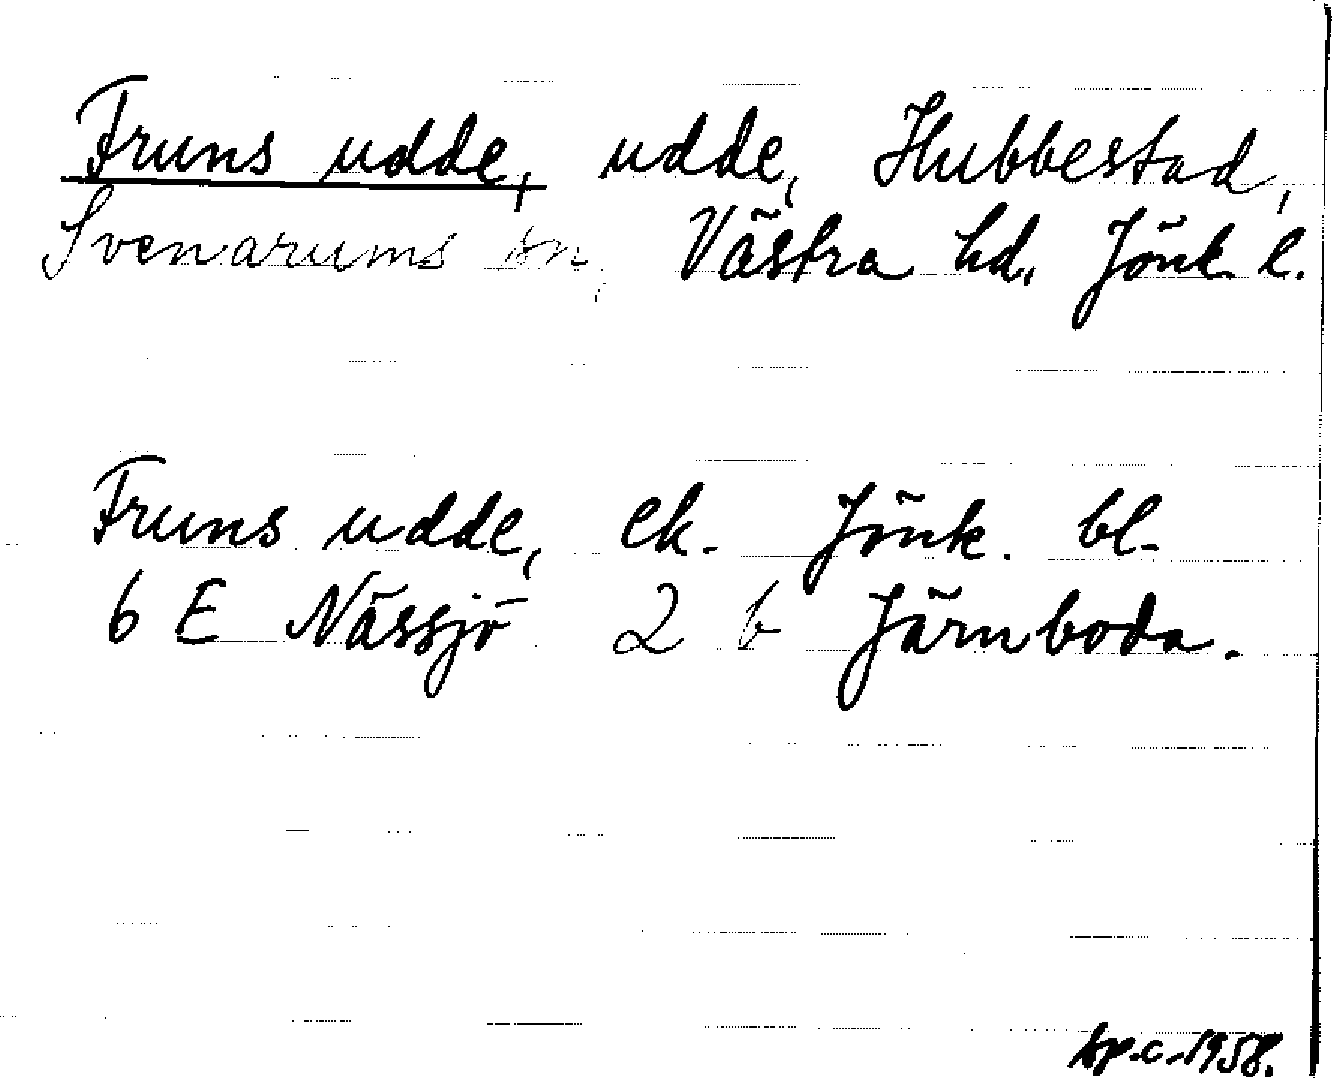 Fruns udde, udde, Hubbestad,
Svenarums sn, Västra hd., Jönk. l.
Fruns udde, ek. Jönk. bl.
6 E Nässjö 2 b Järnboda.
sp.c. 1958.